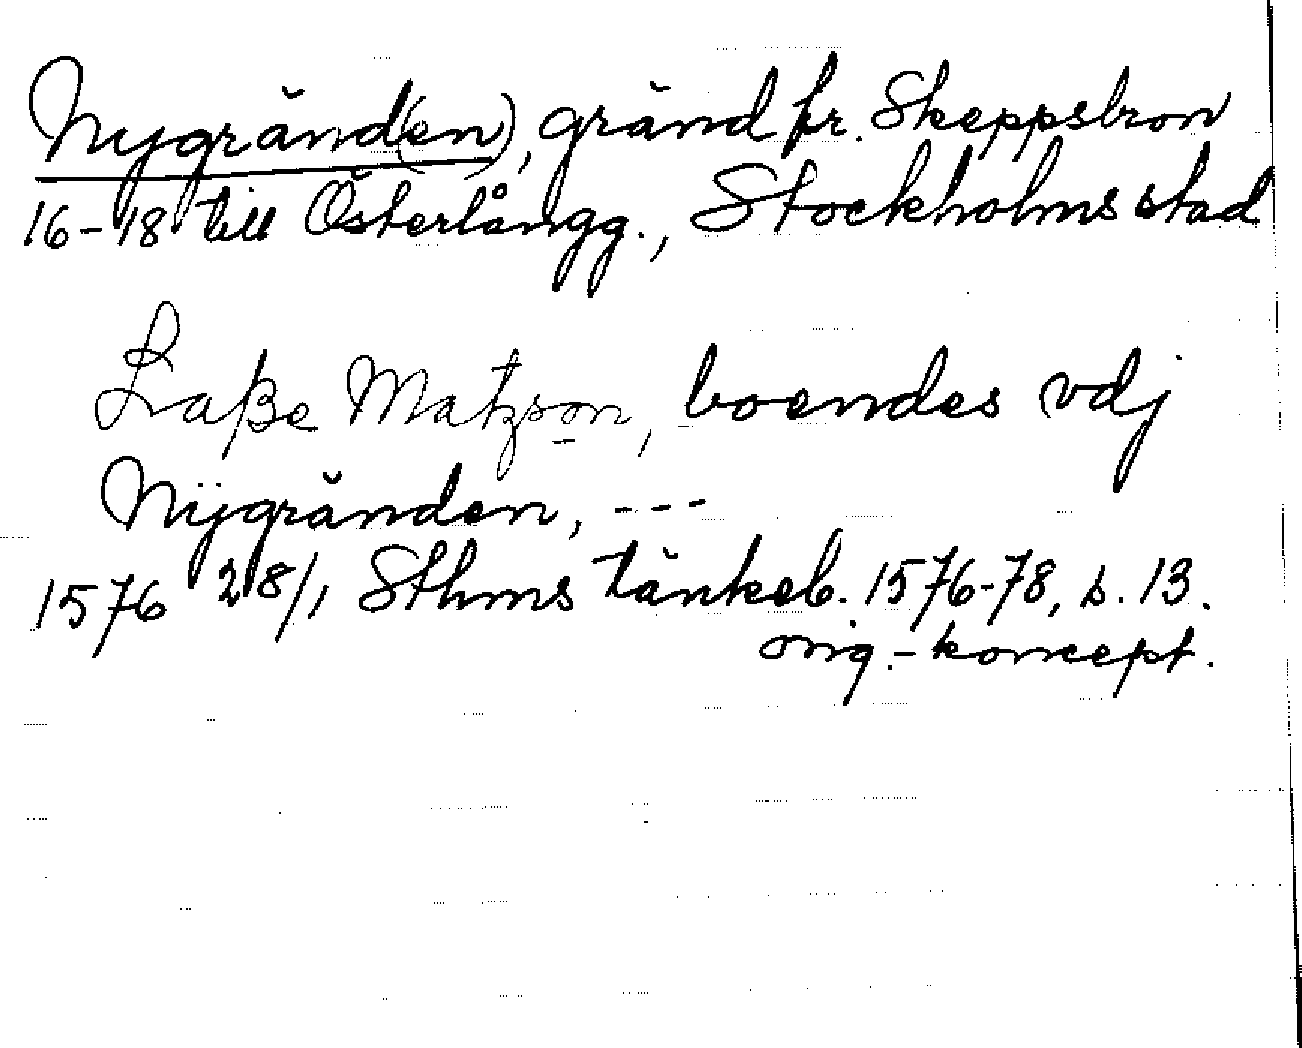 Nygränd(en), gränd fr. Skeppsbron
16-18 till Österlångg., Stockholms stad
Laße Matzson, boendes vdj
Nÿgränden, ---
1576 28/1 Sthms tänkeb. 1576-78, s. 13.
orig.-koncept.